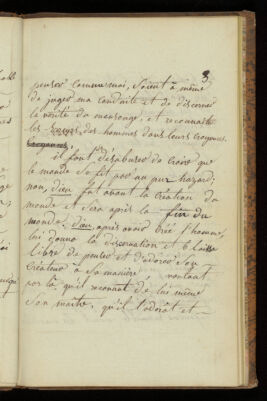 3
penser comme moi, soient à même
de juger ma conduite et de discerner
la vérité du mensonge, et reconnaitre
les des hommes dans leurs croyances
il faut désabuser de croire que
le monde se fit par un pur hazard;
non, dieu fut avant la création du
monde et sera après la fin du
monde. Dieu après avoir créé l'homme
lui donna la discernation et le laissa
libre de penser et d'adorer son
créateur à sa manière voulant
par là qu'il reconnut de lui même
son maitre, qu'il l'adorât et